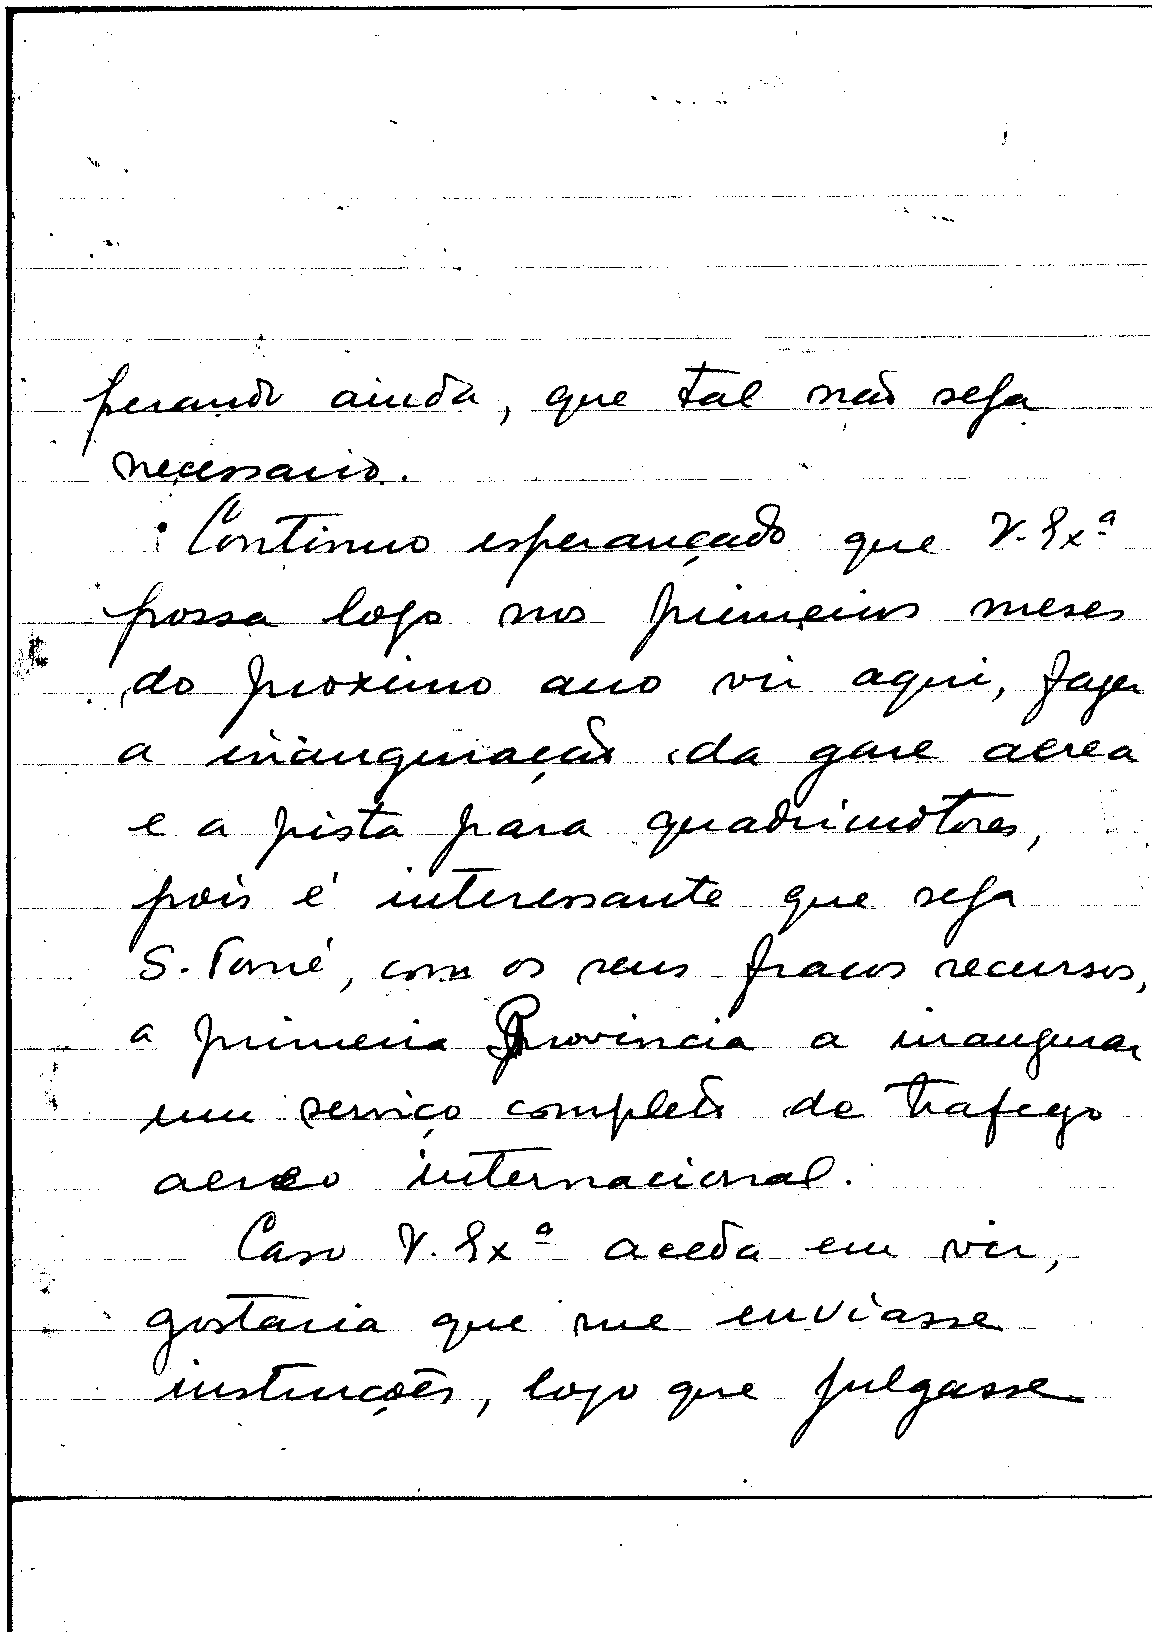 perando ainda, que tal não seja
necessario.
Continuo esperançado que V. Exª
possa logo nos primeiros meses
do proximo ano vir aqui, fazer
a inauguração da gare aerea
e a pista para quadrimotores,
pois é interessante que seja
S. Tomé, com os seus fracos recursos,
a primeira Provincia a inaugurar
um serviço completo de trafego
aereo internacional.
Caso V. Exª aceda em vir,
gostaria que me enviasse
instruções, logo que julgasse